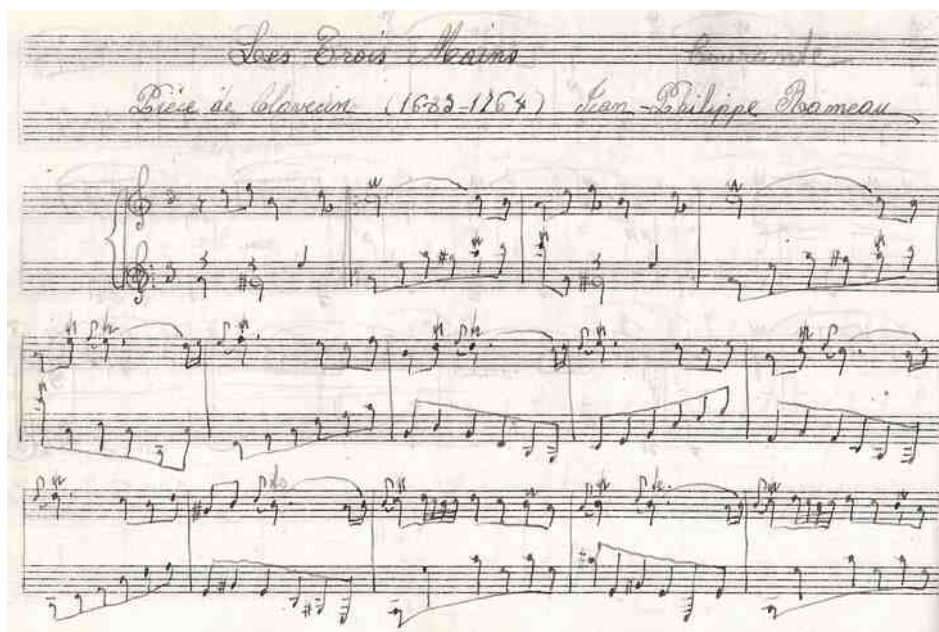 Les Trois Mains Courante
Pièce de Clavecin (1683-1764) Jean-Philippe Rameau